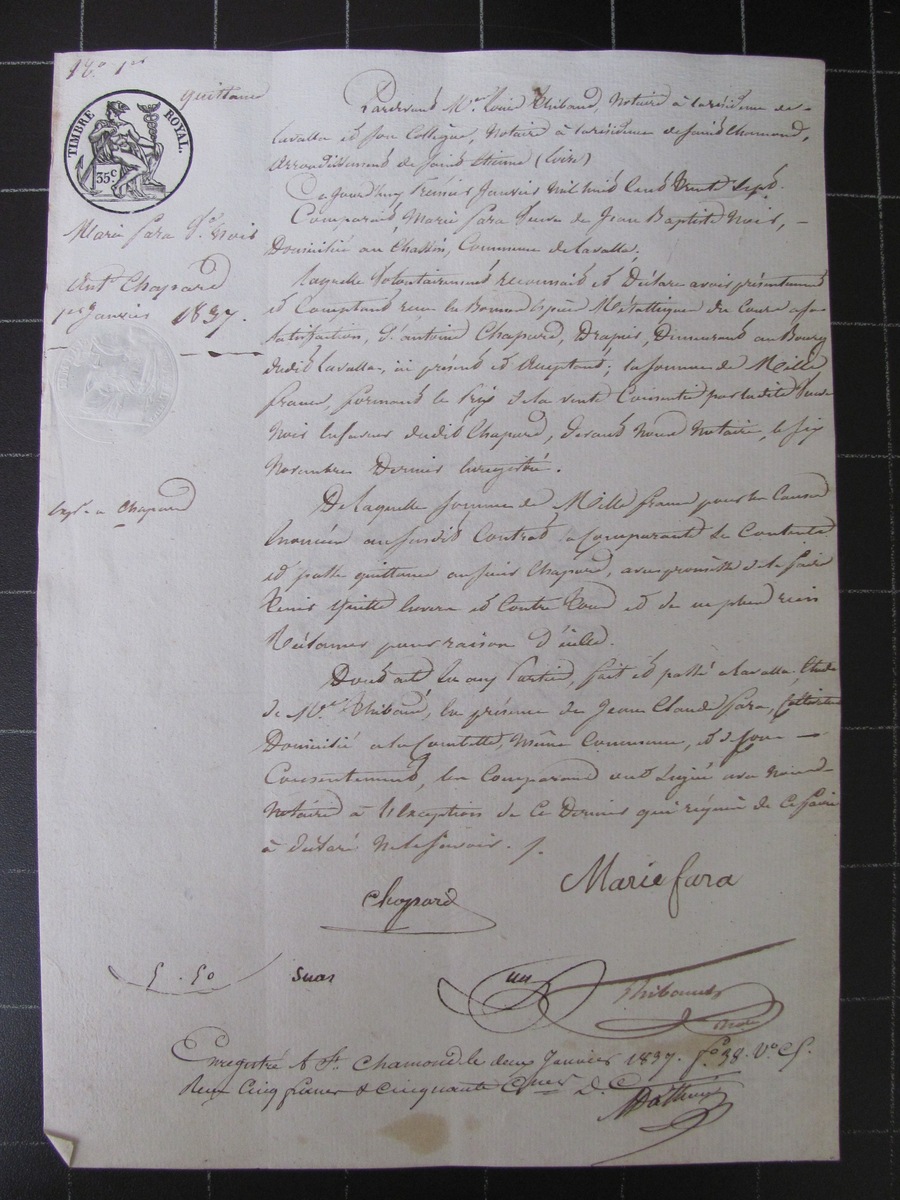 quittance
TIMBRE ROYAL.
35c
Marie fara Ve. Nois
Ante. Chapard
1er Janvier 1837.
Pardevant Me. Louis Thibaud, Notaire à la résidence de
Lavalla et son Collègue, Notaire à la résidence de saint Chamond,
Arrondissement de saint Etienne (Loire)
Ce jourd'huy Premier Janvier mil huit Cent Trente Sept.
Comparait Marie fara Veuve de Jean Baptiste Nois, -
Domiciliée au Chassin, Commune de Lavalla,
Laquelle Volontairement reconnait et Déclare avoir présentement
et Comptant reçu en Bonnes Espèces Métalliques du Cours a sa
satisfaction, d'antoine Chapard, Drapier, Demeurant au Bourg
dudit Lavalla, ici présent et acceptant; la somme de Mille
francs, formant le Prix de la vente Consentie par ladite Veuve
Nois En faveur dudit Chapard, devant Nous Notaire, le six
Novembre Dernier Enregistré.
De laquelle somme de Mille francs pour les Causes
Enoncées au susdit Contrat la Comparante Se Contente
et passe quittance au sieur Chapard, avec promesse de le faire
Tenir quitte Envers et Contre Tous et de ne plus rien
Réclamer pour raison d'icelle.
Dont acte Lu aux Parties, fait et passé a Lavalla, Etude
de Me. Thibaud, En présence de Jean Claude fara,
Domicilié a la Combette, Même Commune, et de son -
Consentement, les Comparans ont Signé avec Nous
Notaire à l'Exception de ce Dernier qui réquis de le faire
à déclaré Ne le Savoir. /.
Expn. a Chapard
Chapard
Marie fara
5 . 50
Thibaud
Notre
Enregistré à St. Chamond le deux Janvier 1837. fo. 38. Vo. C5.
Reçu Cinq francs & cinquante Cmes D. C.